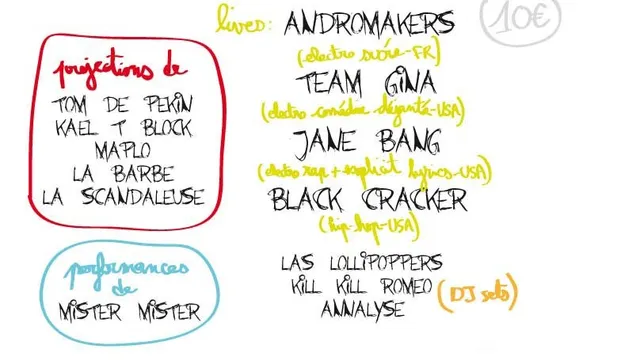 lives: ANDROMAKERS
10€
(electro sucrée-FR)
TEAM GINA
(electro comédie déjantée-USA)
JANE BANG
(electro rap + explicit lyrics-USA)
BLACK CRACKER
(hip-hop-USA)
LAS LOLLIPOPPERS
KILL KILL ROMEO
ANNALYSE
(DJ sets)
projections de
TOM DE PEKIN
KAEL T BLOCK
MAPLO
LA BARBE
LA SCANDALEUSE
performances
de
MISTER MISTER